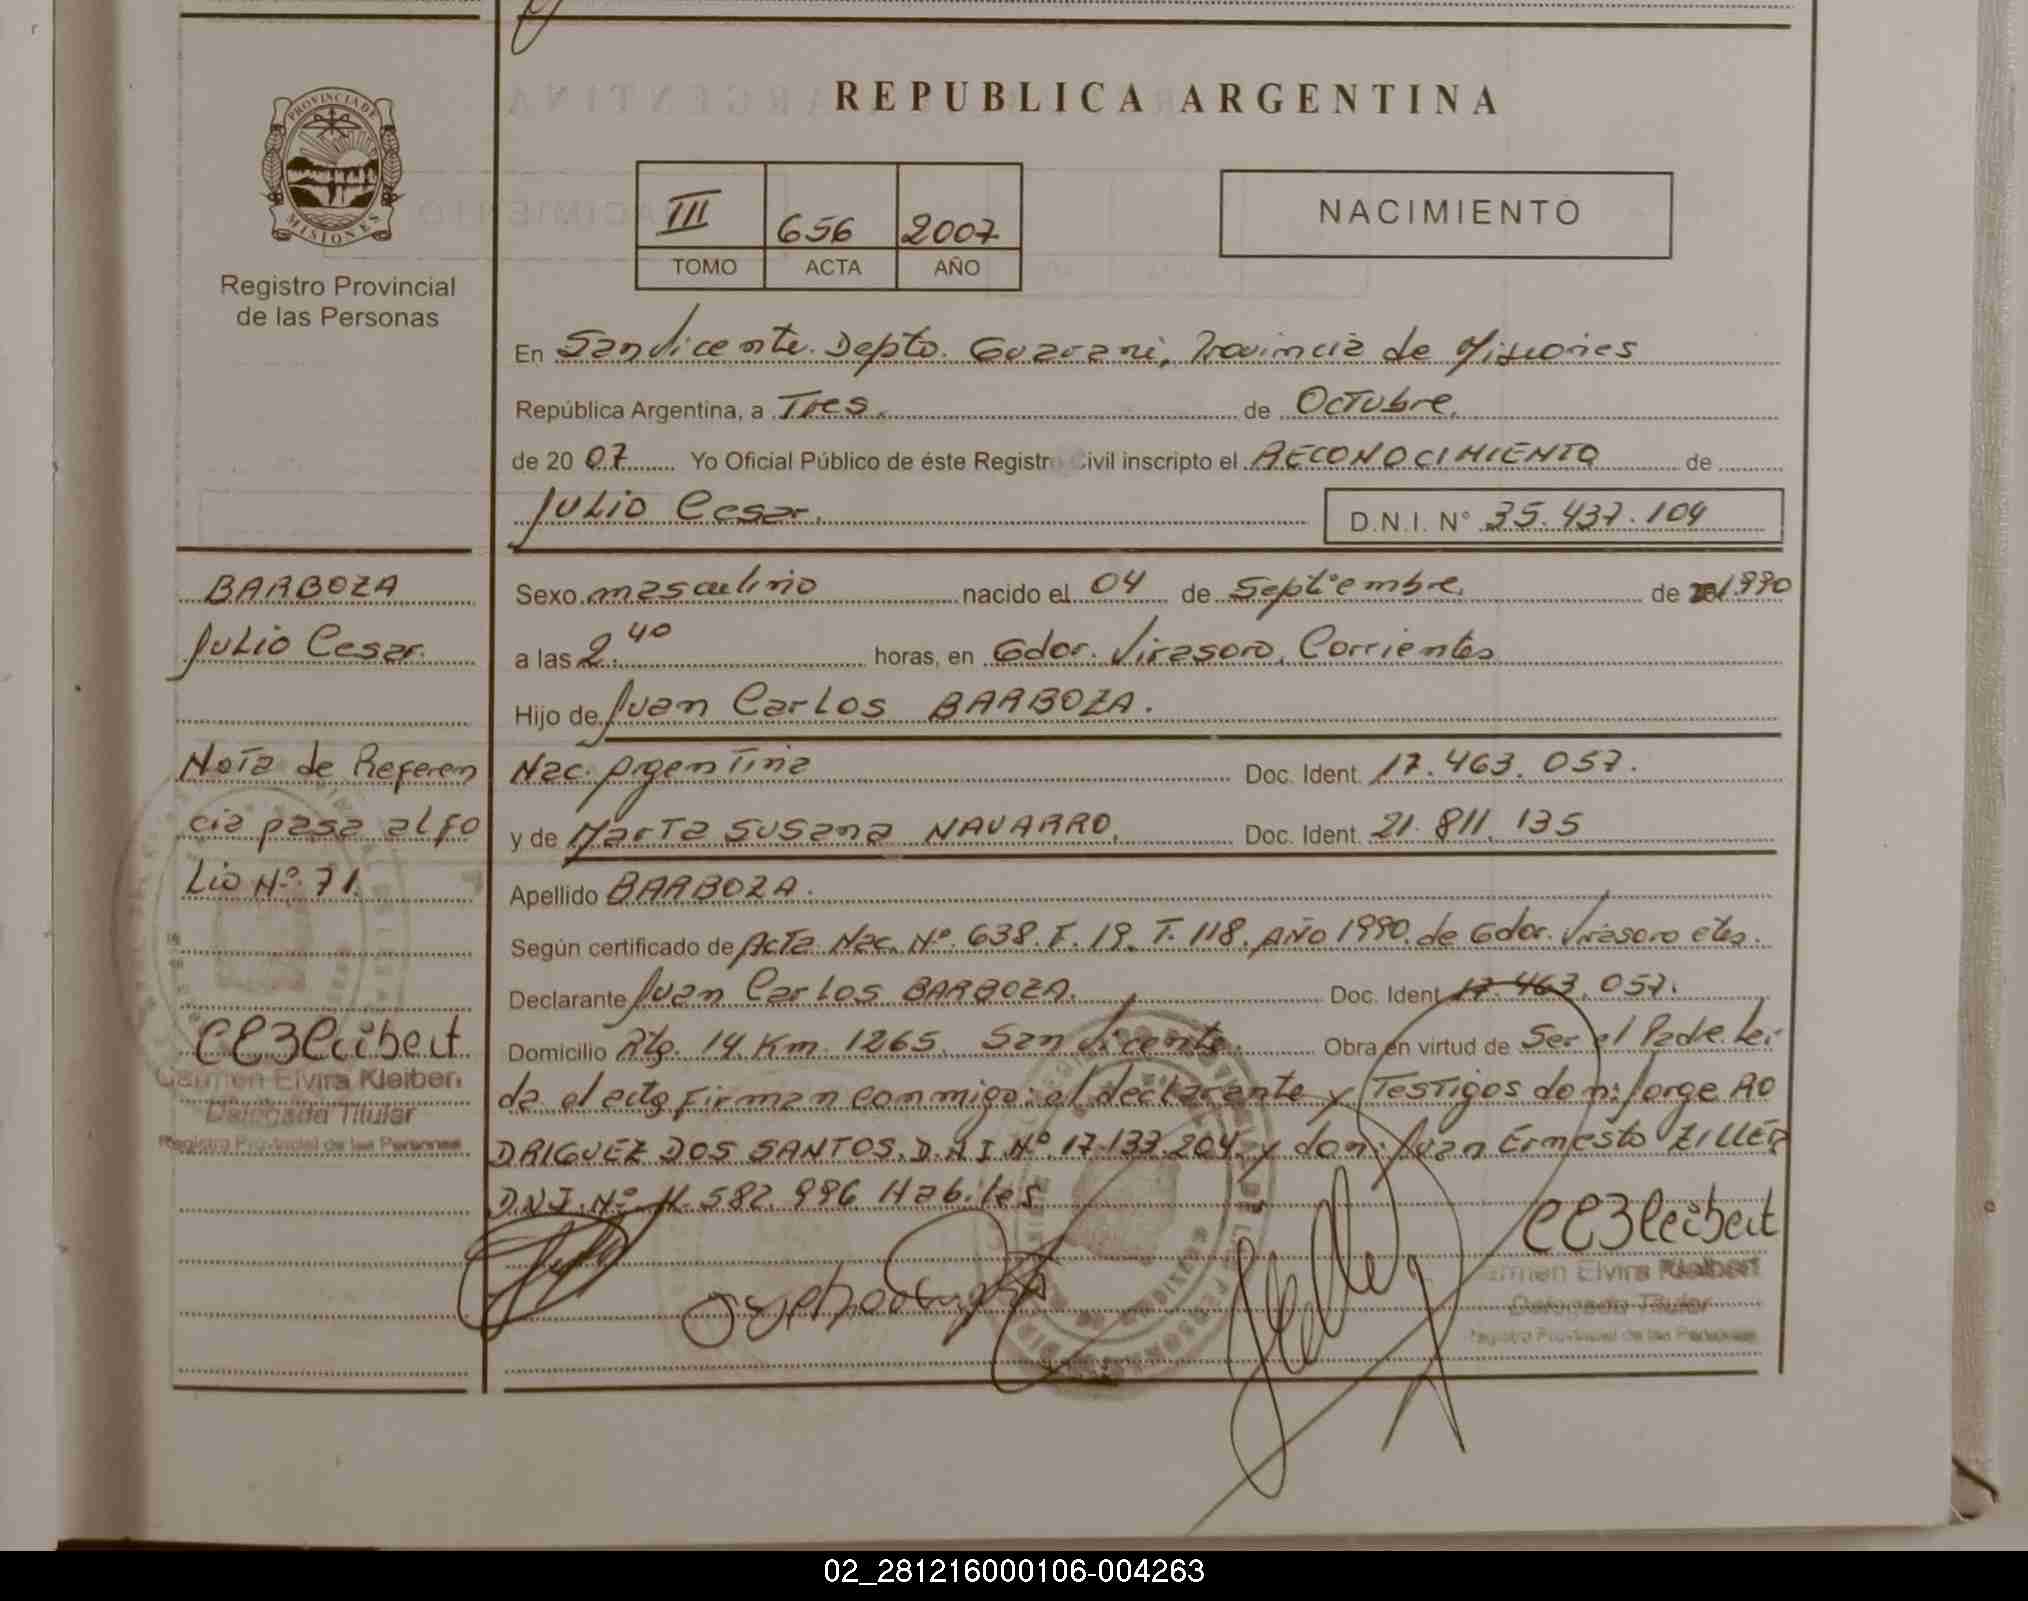 REPUBLICA ARGENTINA
PROVINCIA DE
MISIONES
Registro Provincial
de las Personas
III 656 2007
TOMO ACTA AÑO
NACIMIENTO
En San Vicente. Depto. Guarani, Provincia de Misiones
República Argentina, a Tres. de Octubre.
de 20 07 Yo Oficial Público de éste Registro Civil inscripto el RECONOCIMIENTO de
Julio Cesar. D.N.I. N° 35.437.104
BARBOZA
Julio Cesar.
Nota de Referen
cia pasa al fo
Lio Nº 71.
CEKleibert
Carmen Elvira Kleibert
Delegada Titular
Registro Provincial de las Personas
Sexo masculino nacido el 04 de Septiembre. de 1990
a las 2.40 horas, en Gdor. Virasoro, Corrientes
Hijo de Juan Carlos BARBOZA.
Nac. Argentina Doc. Ident. 17.463.057.
y de Marta Susana NAVARRO. Doc. Ident. 21.811.135
Apellido BARBOZA.
Según certificado de Acta Nac. Nº 638. F. 19. T. 118. AÑO 1990. de Gdor. Virasoro ctes.
Declarante Juan Carlos BARBOZA. Doc. Ident. 17.463.057.
Domicilio Rta. 14 Km 1265. San Vicente. Obra en virtud de Ser el Padre. Lei
da el acta firman conmigo: el declarante y Testigos don: Jorge RO
DRIGUEZ DOS SANTOS. D.N.I Nº 17.133.204. y don: Juan Ernesto ZILLER
D.N.I. Nº 11.582.996 Habiles
CEKleibert
Carmen Elvira Kleibert
Delegada Titular
Registro Provincial de las Personas
02_281216000106-004263